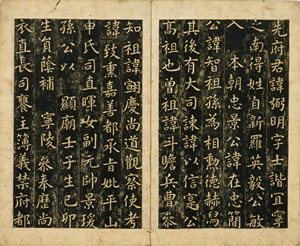 先府君諱弼明字士諧宜寧
之南得姓自新羅英毅公敏
入 本朝忠景公諱在忠簡
公諱智祖孫為相勳德赫
其後有大司諫諱以信寔公
高祖也曾祖諱斗瞻兵曹參
知祖諱翊慶尚道觀察使考
諱致熏嘉善都承旨妣平山
申氏司直暉女副元帥景瑗
孫公以 顯廟壬子生己卯
生員蔭補 寧陵參奉歷尚
衣直長司饔主簿義禁府都